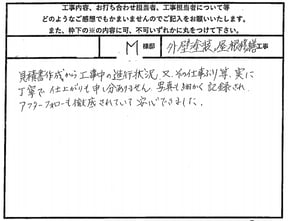 工事内容、お打ち合わせ担当者、工事担当者について等
どのようなご感想でもかまいませんのでご記入をお願いいたします。
また、枠下の※の内容に可、不可いずれかに丸をつけて下さい。
M 様邸 外壁塗装、屋根修繕工事
見積書作成から工事中の進行状況、又、その仕事ぶり等、実に
丁寧で仕上がりも申し分ありません。写真も細かく記録され、
アフターフォローも徹底されていて安心できました。